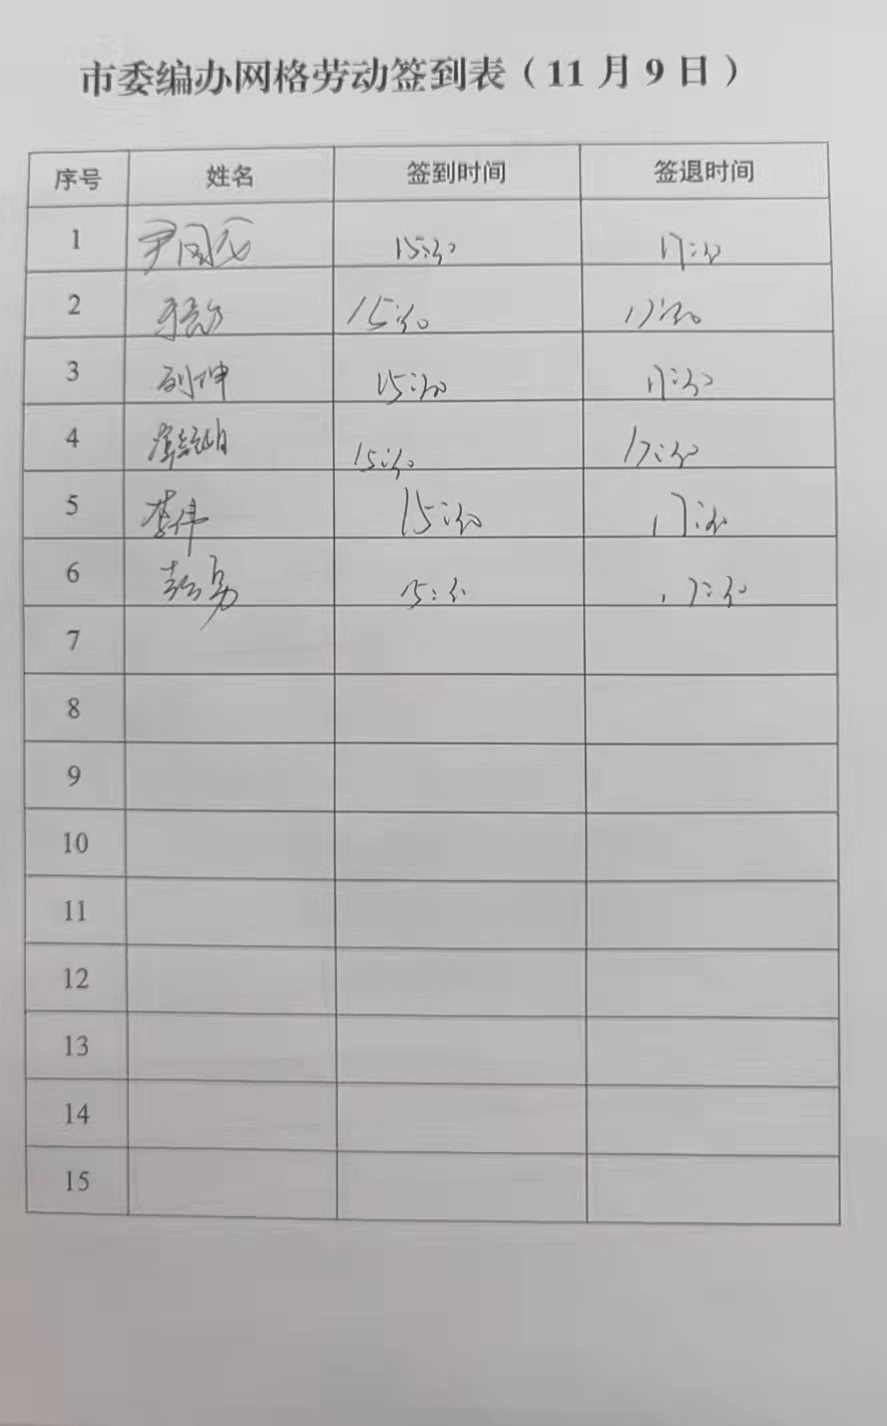 市委编办网格劳动签到表（11月9日）
序号 姓名 签到时间 签退时间
1 15:30 17:30
2 15:30 17:30
3 刘坤 15:30 17:30
4 15:30 17:30
5 李伟 15:30 17:30
6 彭勇 15:30 17:30
7
8
9
10
11
12
13
14
15